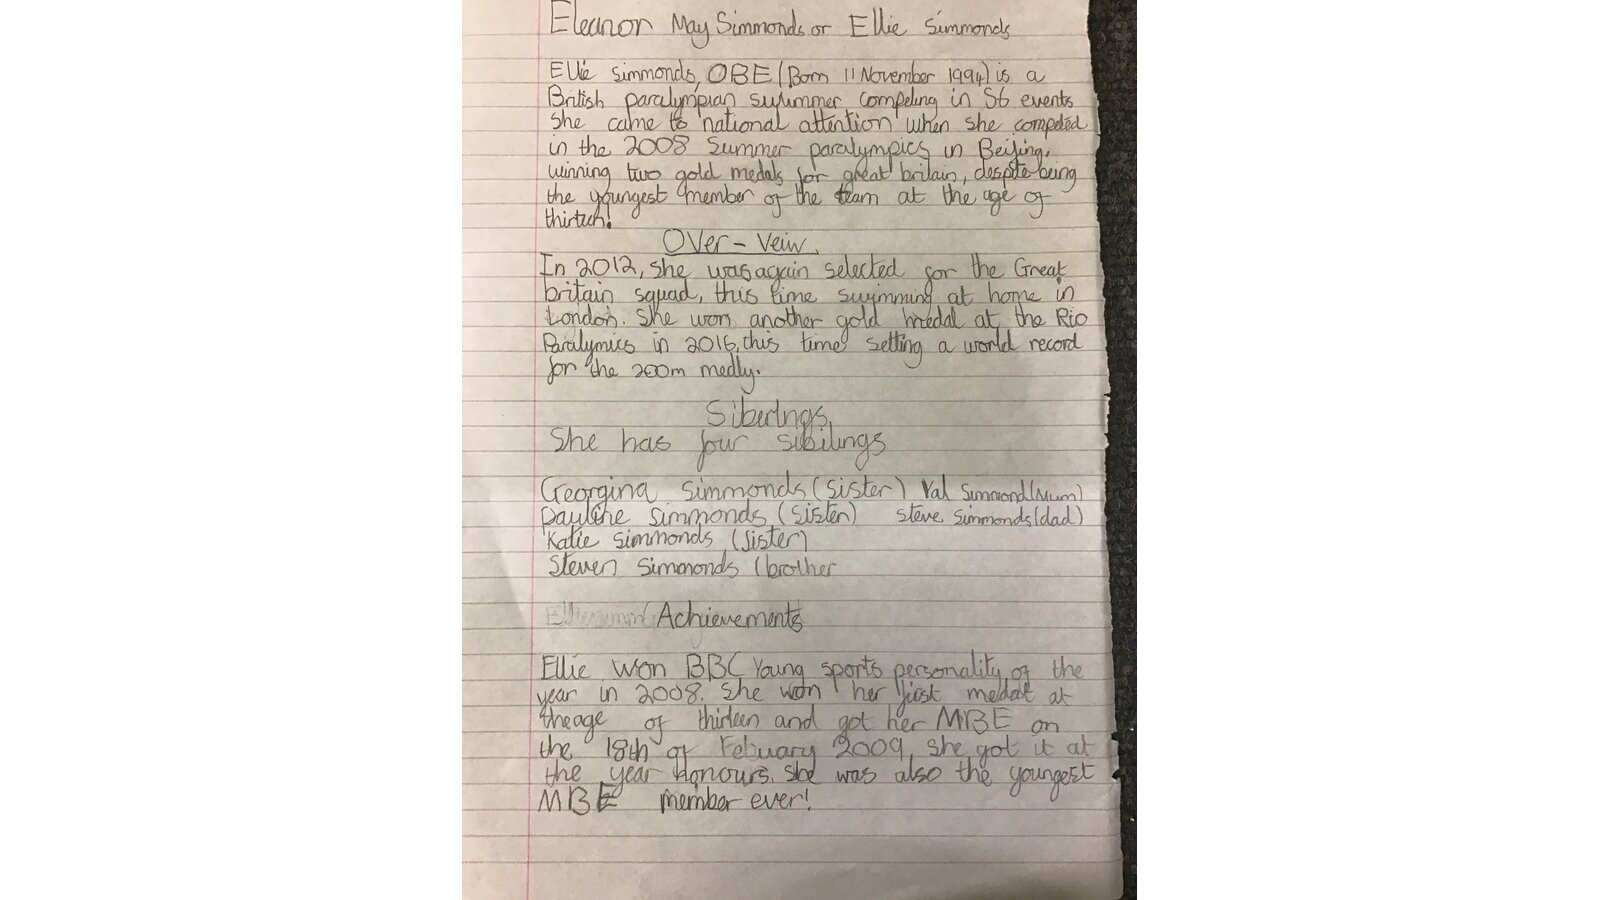 Eleanor May Simmonds or Ellie Simmonds
Ellie Simmonds, OBE (Born 11 November 1994) is a
British paralympian swimmer competing in S6 events
She came to national attention when she competed
in the 2008 Summer paralympics in Beijing,
winning two gold medals for great britain, despite being
the youngest member of the team at the age of
thirteen!
Over - veiw
In 2012, she was again selected for the Great
britain squad, this time swimming at home in
London. She won another gold medal at the Rio
Paralymics in 2016, this time setting a world record
for the 200m medly.
Siberlngs
She has four sibilings
Georgina Simmonds (sister) Val Simmond (Mum)
Pauline Simmonds (sister) Steve Simmonds (dad)
Katie Simmonds (sister)
Steven Simmonds (brother
Achievements
Ellie won BBC Young sports personality of the
year in 2008. She won her first medal at
the age of thirteen and got her MBE on
the 18th of Febuary 2009, She got it at
the year Honours. She was also the youngest
MBE member ever!